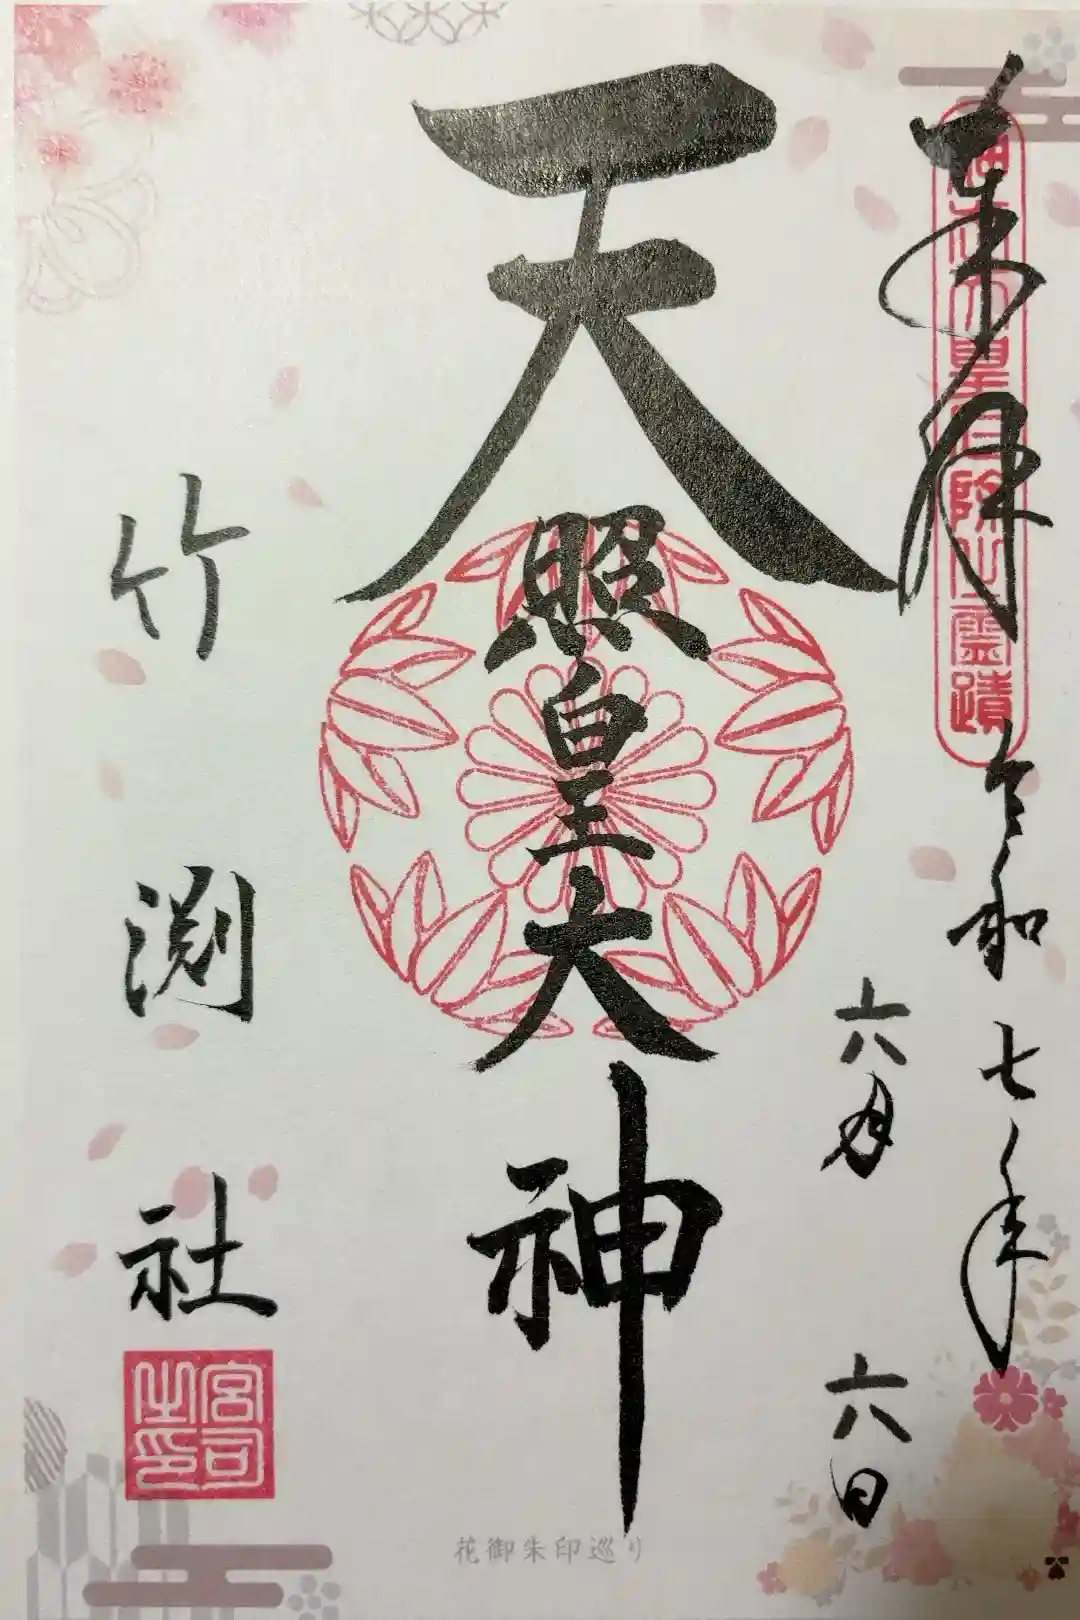 奉拝 令和七年
六月 六日
天照皇大神
竹渕社
宮司之印
花御朱印巡り